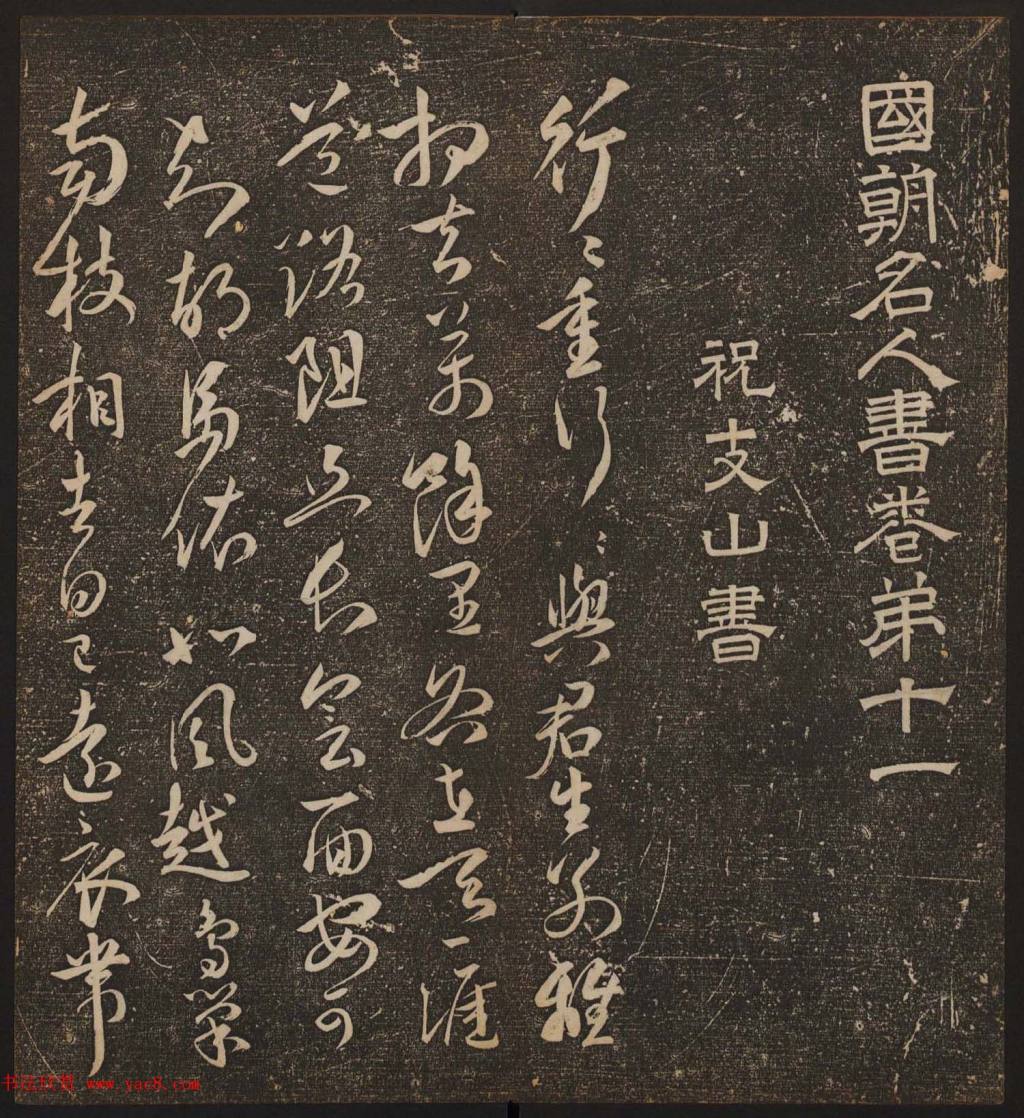 國朝名人書卷弟十一
祝支山書
行〻重行〻與君生別離
相去萬餘里各在天一涯
道路阻且長會面安可
知胡馬依北風越鳥巢
南枝相去日已遠衣帶
书法欣赏 www.yac8.com